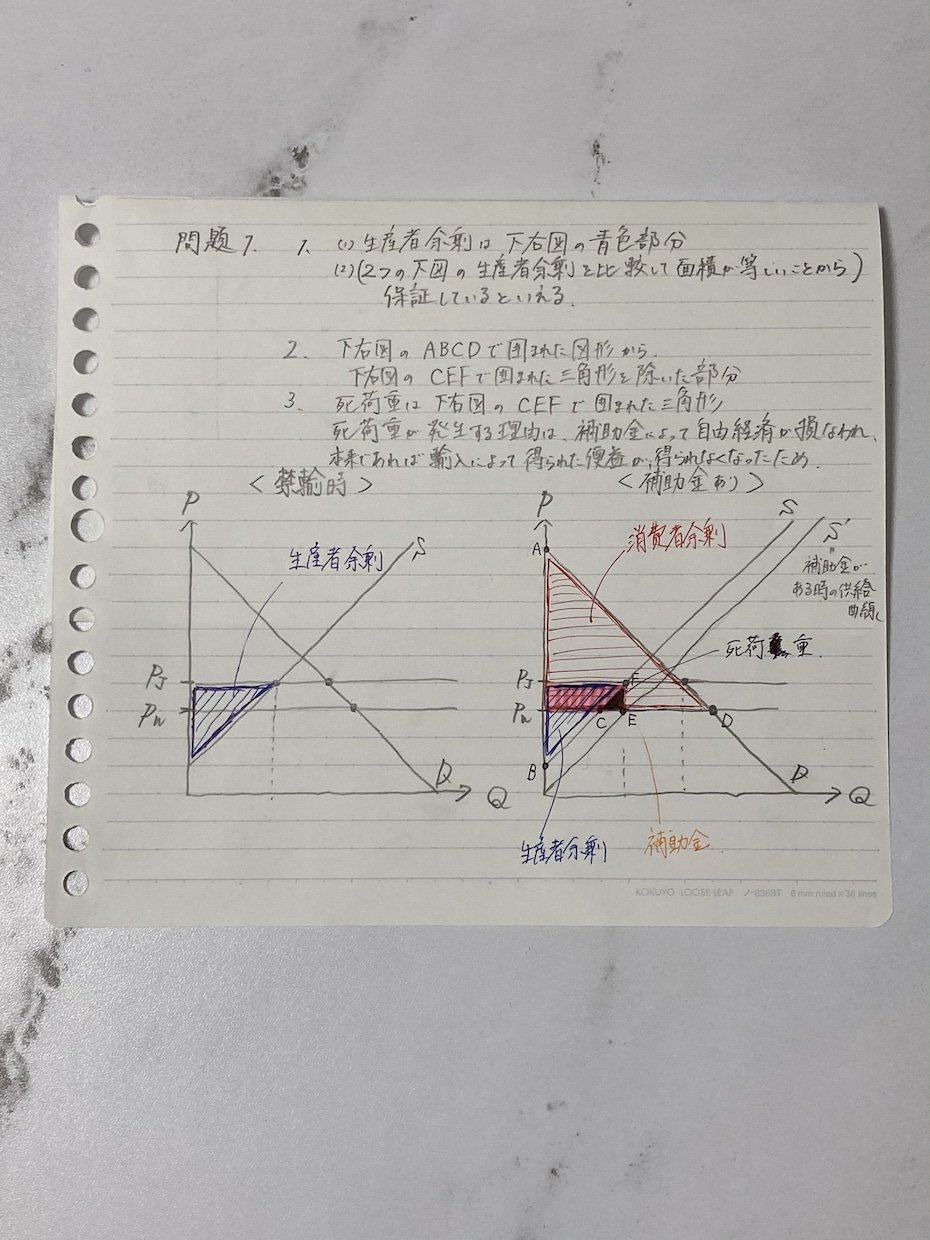 問題7. 1. (1) 生産者余剰は下右図の青色部分
(2) (2つの下図の生産者余剰を比較して面積が等しいことから)
保証しているといえる.
2. 下右図の ABCD で囲まれた図形から.
下右図の CEF で囲まれた三角形を除いた部分
3. 死荷重は下右図の CEF で囲まれた三角形
死荷重が発生する理由は、補助金によって自由経済が損なわれ、
本来であれば輸入によって得られた便益が、得られなくなったため.
<禁輸時>
P
生産者余剰
S
PJ
Pw
D
Q
<補助金あり>
P
A
消費者余剰
S
S'
"
補助金が
ある時の供給
曲線
死荷重.
PJ
F
Pw
C
E
D
B
D
Q
生産者余剰
補助金.
KOKUYO LOOSE-LEAF ノ-836BT 8 mm ruled×36 lines